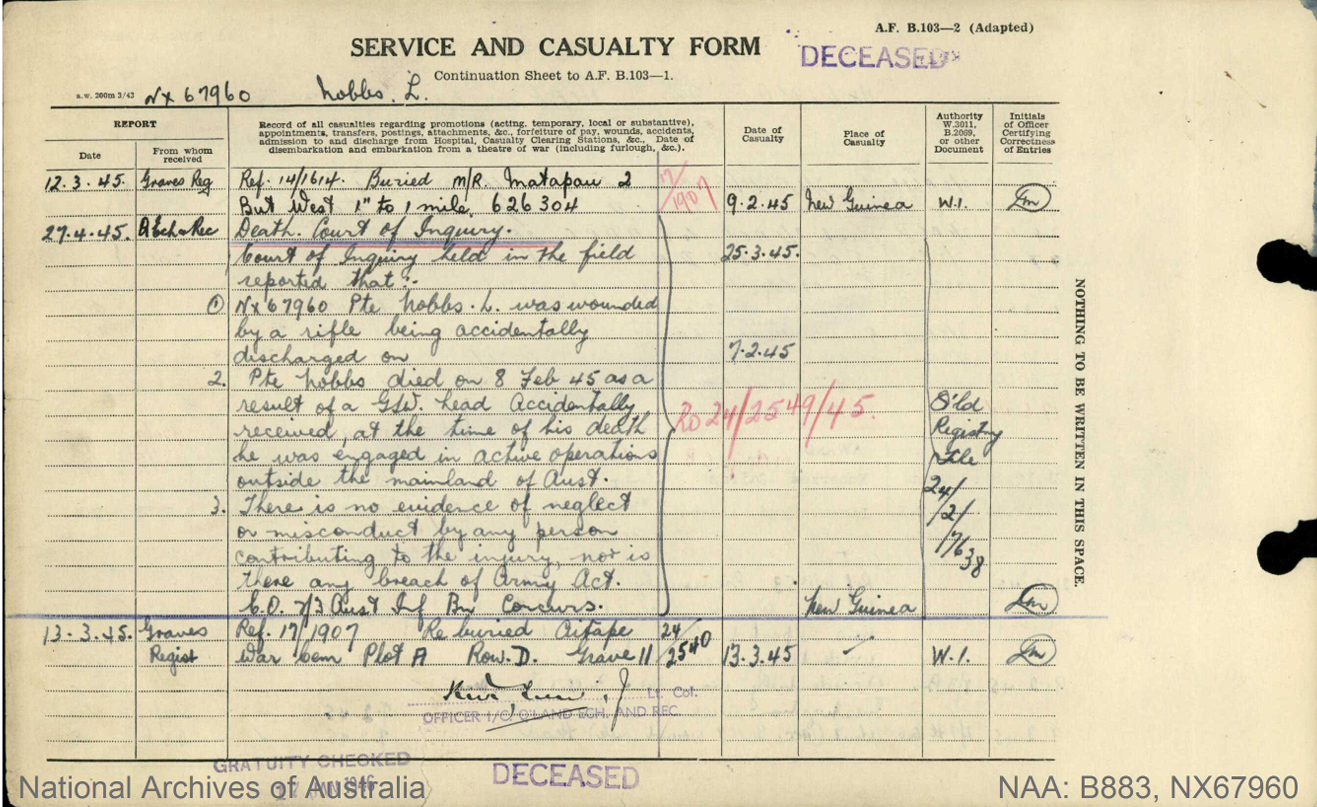 A.F. B.103—2 (Adapted)
SERVICE AND CASUALTY FORM
DECEASED
Continuation Sheet to A.F. B.103—1.
s.w. 200m 3/43 NX 67960 Nobbs. L.
REPORT
Date
From whom received
Record of all casualties regarding promotions (acting, temporary, local or substantive),
appointments, transfers, postings, attachments, &c., forfeiture of pay, wounds, accidents,
admission to and discharge from Hospital, Casualty Clearing Stations, &c., Date of
disembarkation and embarkation from a theatre of war (including furlough, &c.).
Date of Casualty
Place of Casualty
Authority W.3011, B.2069, or other Document
Initials of Officer Certifying Correctness of Entries
12.3.45. Graves Reg Ref. 14/1614. Buried M/R. Matapau 2
17/1907
But West 1" to 1 mile. 626304 9.2.45 New Guinea W.1.
27.4.45. Death. Court of Inquiry.
Court of Inquiry held in the field 25.3.45.
reported that:-
① NX67960 Pte Nobbs. L. was wounded
by a rifle being accidentally
discharged on 7.2.45
2. Pte Nobbs died on 8 Feb 45 as a
result of a GSW. head Accidentally
received, at the time of his death
he was engaged in active operations
outside the mainland of Aust.
Ro 24/2549/45.
Q'ld
Registry
File
24/
/2/
17638
3. There is no evidence of neglect
or misconduct by any person
contributing to the injury, nor is
there any breach of Army Act.
C.O. 2/3 Aust Inf Bn Concurs. New Guinea
13.3.45. Graves Ref. 17/1907 Re buried Aitape 24/
Regist War Cem Plot A Row. D. Grave 11 2540 13.3.45 W.1.
Lt. Col.
OFFICER I/C. Q'LAND ECH. AND REC.
NOTHING TO BE WRITTEN IN THIS SPACE.
GRATUITY CHECKED
JAN 1946
DECEASED
National Archives of Australia
NAA: B883, NX67960